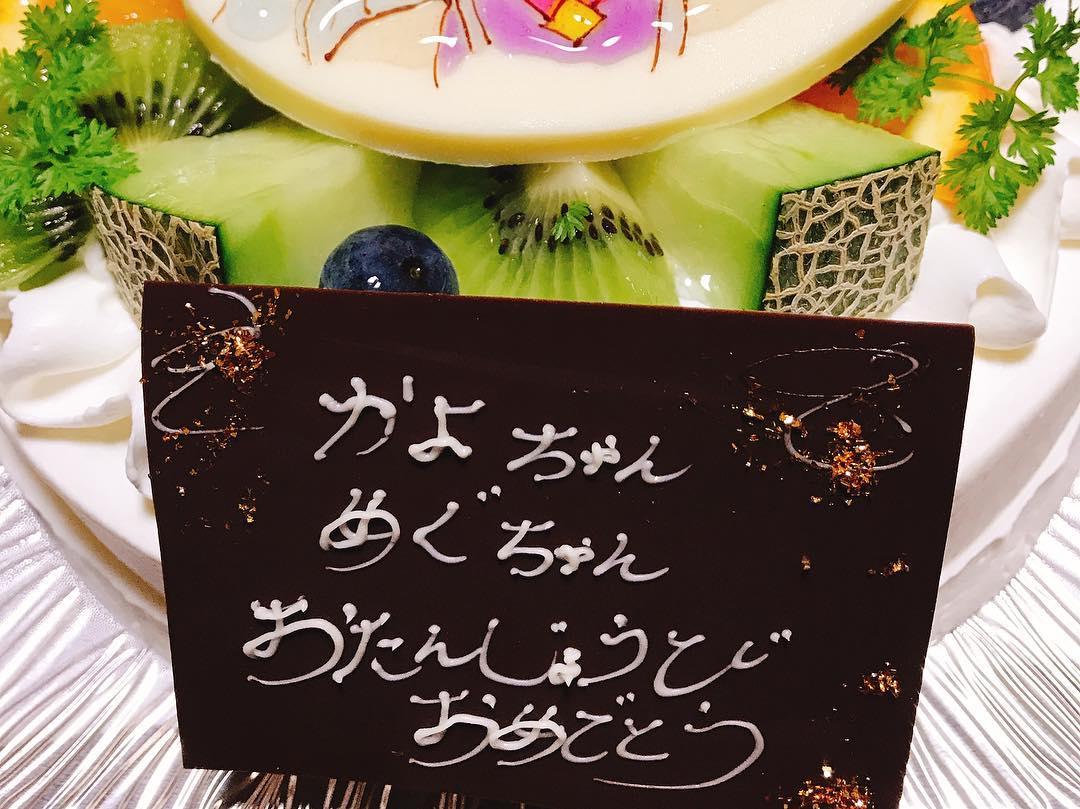 かよちゃん
めぐちゃん
おたんじょうび
おめでとう